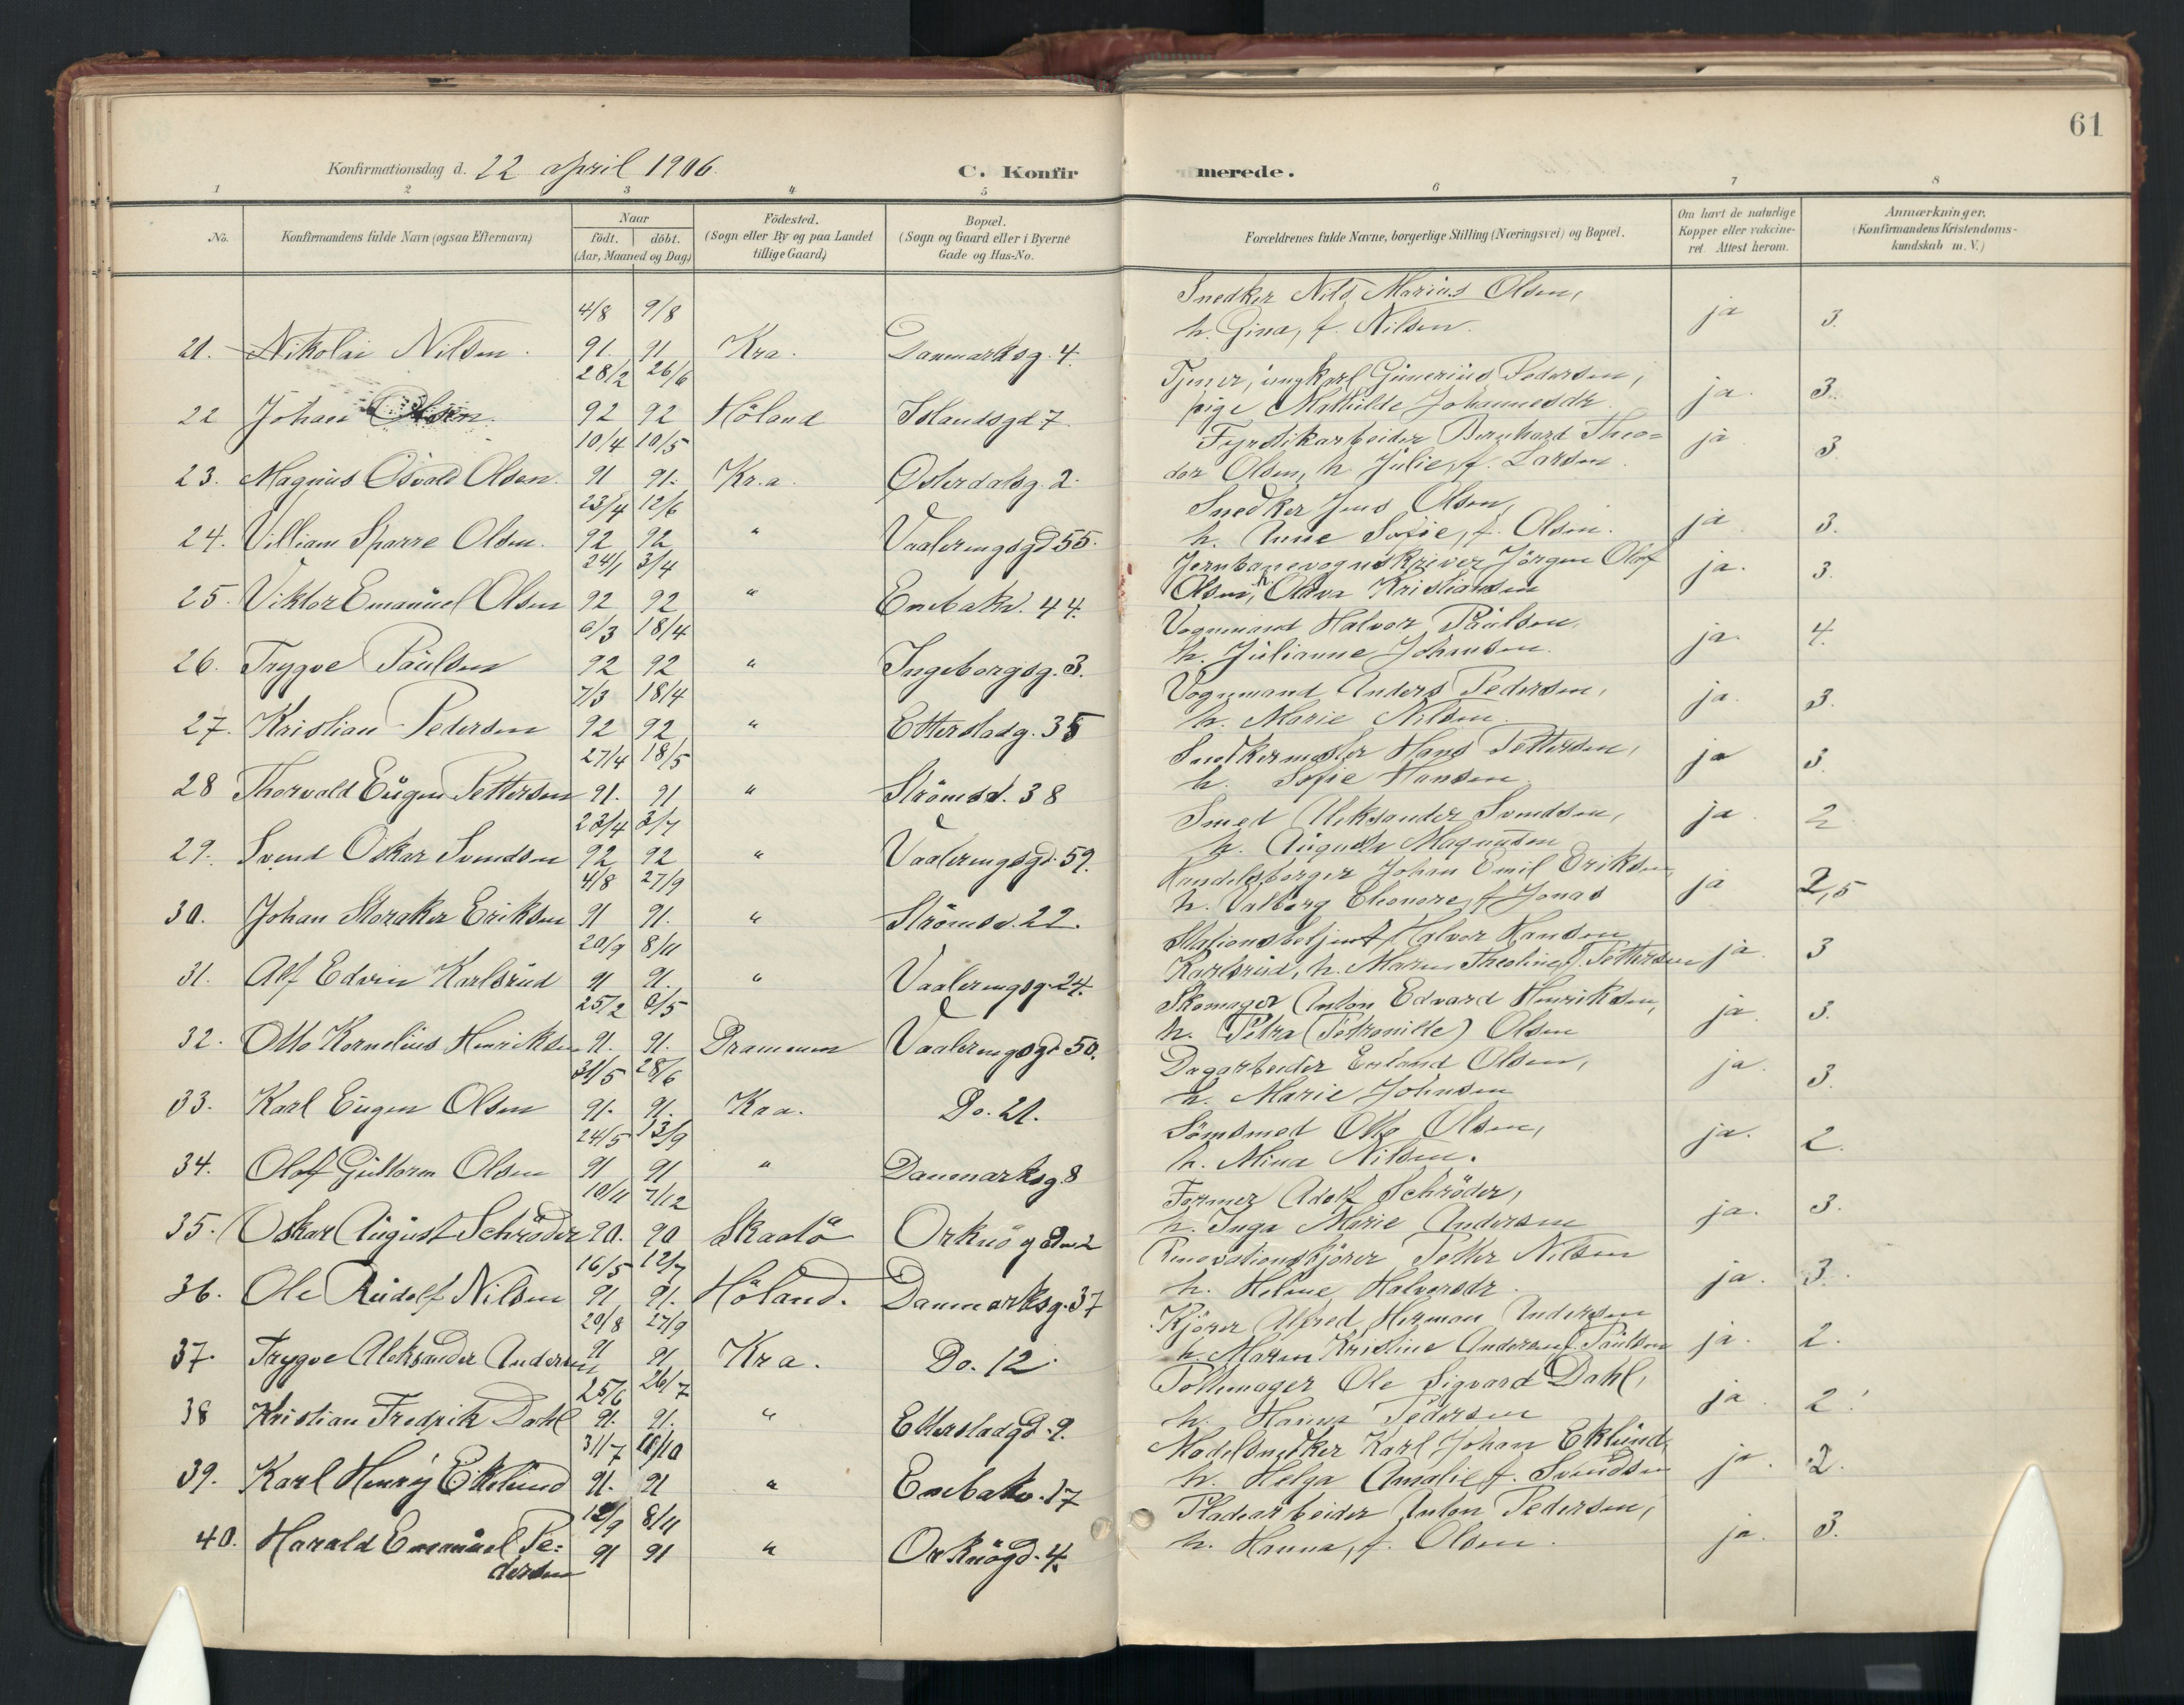 61
Konfirmationsdag d. 22 april 1906.
C. Konfirmerede.
1 2 3 4 5 6 7 8
No.
Konfirmandens fulde Navn (ogsaa Efternavn)
Naar
födt. döbt.
(Aar, Maaned og Dag)
Födested.
(Sogn eller By og paa Landet
tillige Gaard)
Bopæl.
(Sogn og Gaard eller i Byerne
Gade og Hus-No.
Forældrenes fulde Navne, borgerlige Stilling (Næringsvei) og Bopæl.
Om havt de naturlige
Kopper eller vakcine-
ret. Attest herom.
Anmærkninger.
(Konfirmandens Kristendoms-
kundskab m. V.)
4/8 9/8 Snedker Nils Marius Olsen,
21. Nikolai Nilsen. 91. 91 Kra. Danmarksg. 4. h. Gina, f. Nilsen. ja 3.
28/2 26/6 Tjener, ungkarl Gunerius Pedersen,
22 Johan Olsen. 92 92 Höland Islandsgd 7. pige Mathilde Johannesdr. ja. 3.
10/4 10/5 Fyrstikarbeider Bernhard Theo=
23. Magnus Osvald Olsen. 91 91. Kr.a. Østerdalsg. 2. dor Olsen, h. Julie, f. Larsen. ja 3.
23/4 12/6 Snedker Jens Olsen,
24. Villiam Sparre Olsen. 92 92 " Vaaleringsgd 55. h. Anne Sofie, f. Olsen. ja 3.
24/1 3/4 Jernbanevognskriver Jörgen Olaf
25. Viktor Emanuel Olsen 92 92 " Enebakv. 44. Olsen, h. Oldva Kristiansen ja. 3.
6/3 18/4 Vognmand Halvor Paulsen,
26. Trygve Paulsen 92 92 " Ingeborgsg. 3. h. Julianne Johansen. ja. 4.
7/3 18/4 Vognmand Anders Pedersen,
27. Kristian Pedersen 92 92 " Etterstadg. 35 h. Marie Nilsen. ja. 3.
27/4 18/5 Snedkermester Hans Pettersen,
28 Thorvald Eugen Pettersen 91. 91 " Strömsv. 38 h. Sofie Hansen. ja 3.
23/4 3/7 Smed Aleksander Svendsen,
29. Svend Oskar Svendsen 92 92 " Vaaleringsgd. 59. h. Augusta Magnusen ja. 2.
4/8 27/9 Handelsborger Johan Emil Eriksen,
30. Johan Storaker Eriksen 91 91. " Strömsv. 22. h. Valborg Eleonore, f. Jonas ja 2,5
20/9 8/11 Stationsbetjent Halvor Hansen
31. Alf Edvin Karlsrud 91 91. " Vaaleringsg. 24. Karlsrud, h. Maren Theoline f. Pettersen ja. 3
25/2 6/5 Skomager Anton Edvard Henriksen,
32. Otto Kornelius Henriksen 91. 91. Drammen Vaaleringsgd 50. h. Petra (Petronille) Olsen ja. 3.
31/5 28/6 Dagarbeider Erland Olsen,
33. Karl Eugen Olsen 91. 91. Kra. Do. 21. h. Marie Johnsen ja. 3.
24/5 13/9 Sömsmed Otto Olsen,
34. Olaf Guttorm Olsen 91 91 " Danmarksg. 8 h. Mina Nilsen. ja. 2.
10/11 7/12 Former Adolf Schröder,
35. Oskar August Schröder 90. 90 Skaatö Orknögdn 2 h. Inga Marie Andersen ja. 3.
16/5 12/7 Renovationskjörer Petter Nilsen
36. Ole Rudolf Nilsen 91 91. Höland. Danmarksg. 37 h. Helene Halvorsdr. ja. 3.
29/8 27/9 Kjörer Alfred Herman Andersen
37. Trygve Aleksander Andersen 91 91 Kra. Do. 12. h. Maren Kristine Andersen f. Paulsen ja. 2.
25/6 26/7 Pottemager Ole Sigvard Dahl,
38 Kristian Fredrik Dahl 91. 91. " Etterstadgd. 9. h. Hanna Pedersen ja. 2.
31/7 11/10 Modelsnedker Karl Johan Eklund,
39. Karl Henry Eklund 91. 91 " Enebakv. 17 h. Helga Amalie f. Svendsen ja. 2.
12/9 8/11 Pladearbeider Anton Pedersen,
40. Harald Emanuel Pe= 91 91 " Orknögd. 4. h. Hanna, f. Olsen. ja. 3.
dersen